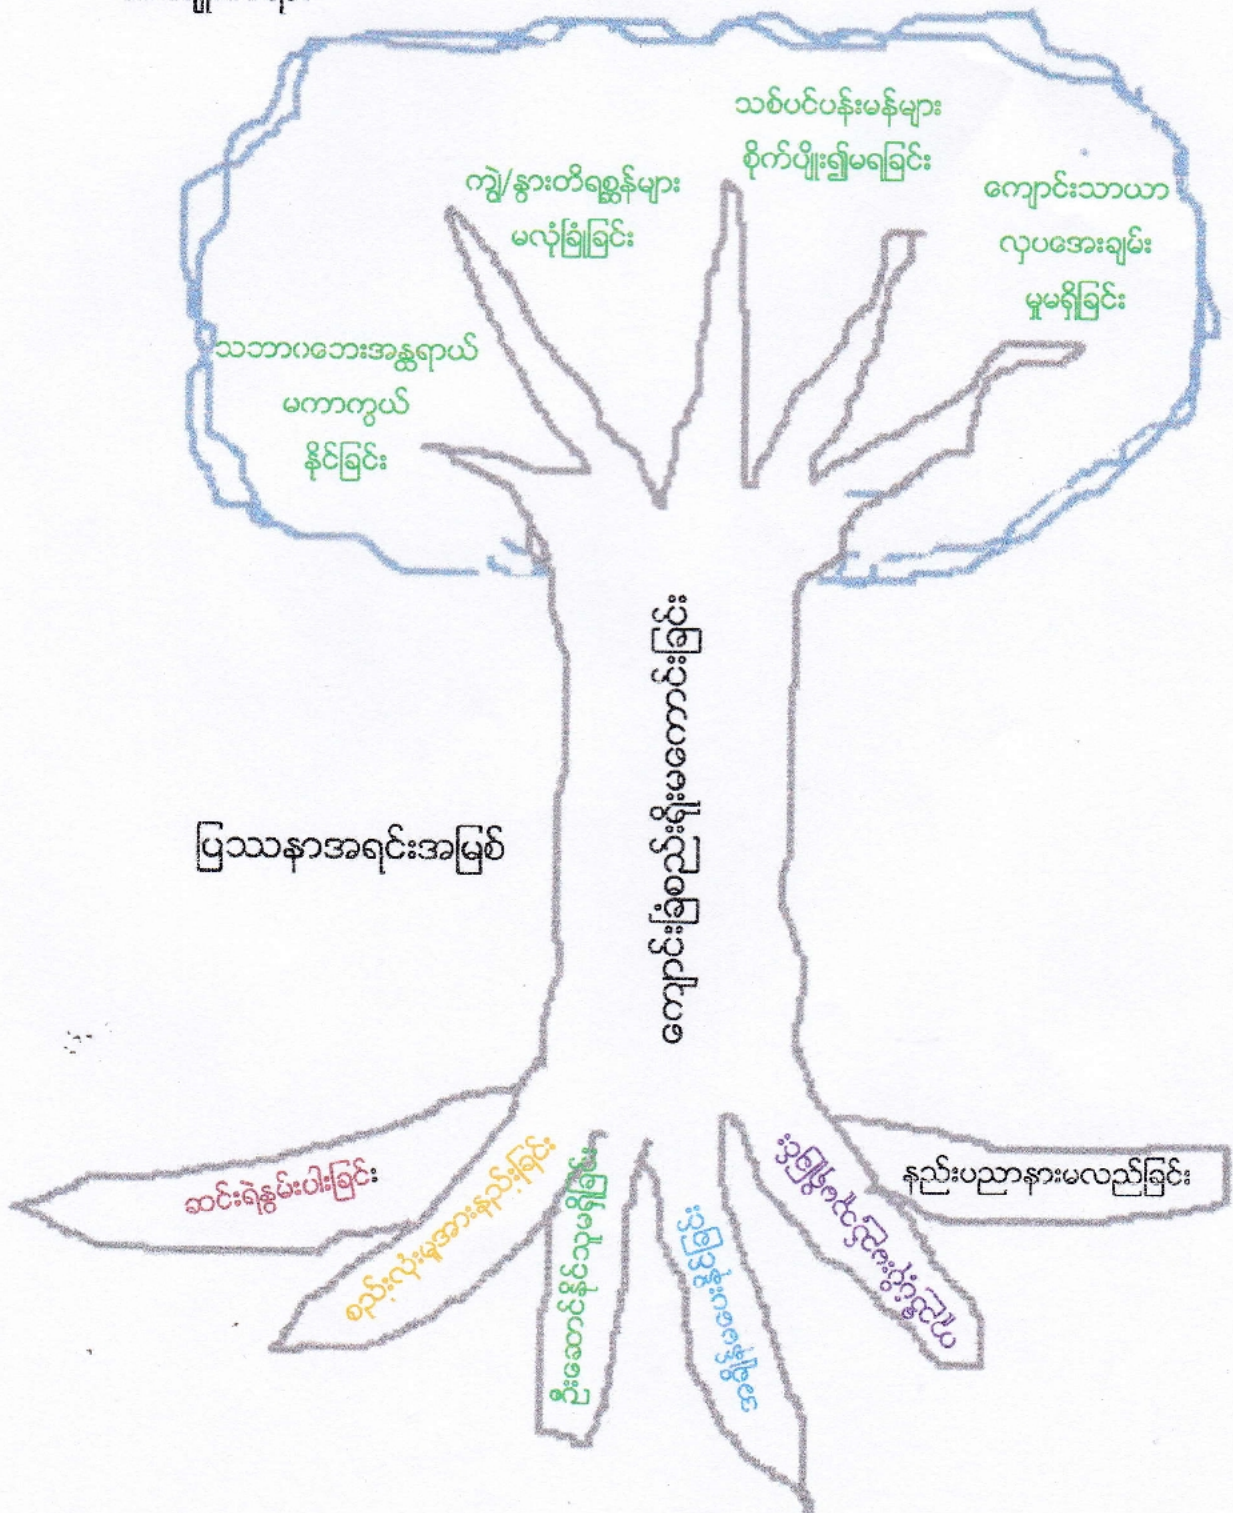 သစ်ပင်ပန်းမန်များ
စိုက်ပျိုး၍မရခြင်း
ကျွဲ/နွားတိရစ္ဆန်များ
မလုံခြုံခြင်း
ကျောင်းသာယာ
လှပအေးချမ်း
မှုမရှိခြင်း
သဘာဝဘေးအန္တရာယ်
မကာကွယ်
နိုင်ခြင်း
ကျောင်းခြံစည်းရိုးမကောင်းခြင်း
ပြဿနာအရင်းအမြစ်
ဆင်းရဲနွမ်းပါးခြင်း
စည်းလုံးမှုအားနည်းခြင်း
ဦးဆောင်နိုင်သူမရှိခြင်း
နည်းပညာနားမလည်ခြင်း